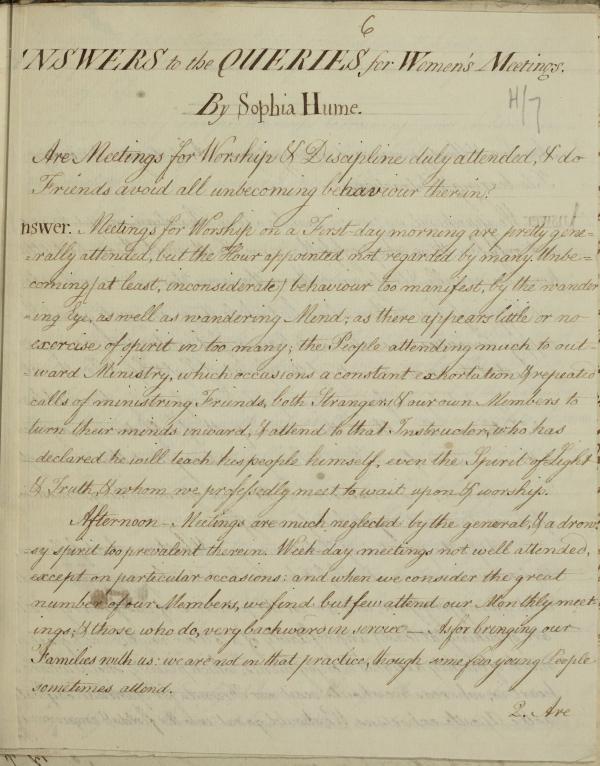 6
NSWERS to the QUERIES for Women's Meetings.
By Sophia Hume.
H/7
Are Meetings for Worship & Discipline duly attended, & do
Friends avoid all unbecoming behaviour therein?
nswer. Meetings for Worship on a First-day morning are pretty gene=
=rally attended, but the Hour appointed not regarded by many. Unbe=
=coming (at least, inconsiderate) behaviour too manifest, by the wander
=ing Eye, as well as wandering Mind; as there appears little or no
exercise of spirit in too many; the People attending much to out=
=ward Ministry, which occasions a constant exhortation & repeated
calls of ministring Friends, both Strangers & our own Members to
turn their minds inward, & attend to that Instructor, who has
declared he will teach his people himself, even the Spirit of Light
& Truth, & whom we professedly meet to wait upon & worship.
Afternoon - Meetings are much neglected by the general, & a drow=
sy spirit too prevalent therein. Week-day meetings not well attended,
except on particular occasions: and when we consider the great
number of our Members, we find but few attend our Monthly meet=
ings; & those who do, very backward in service — As for bringing our
Families with us: we are not in that practice, though some few young People
sometimes attend.
2. Are